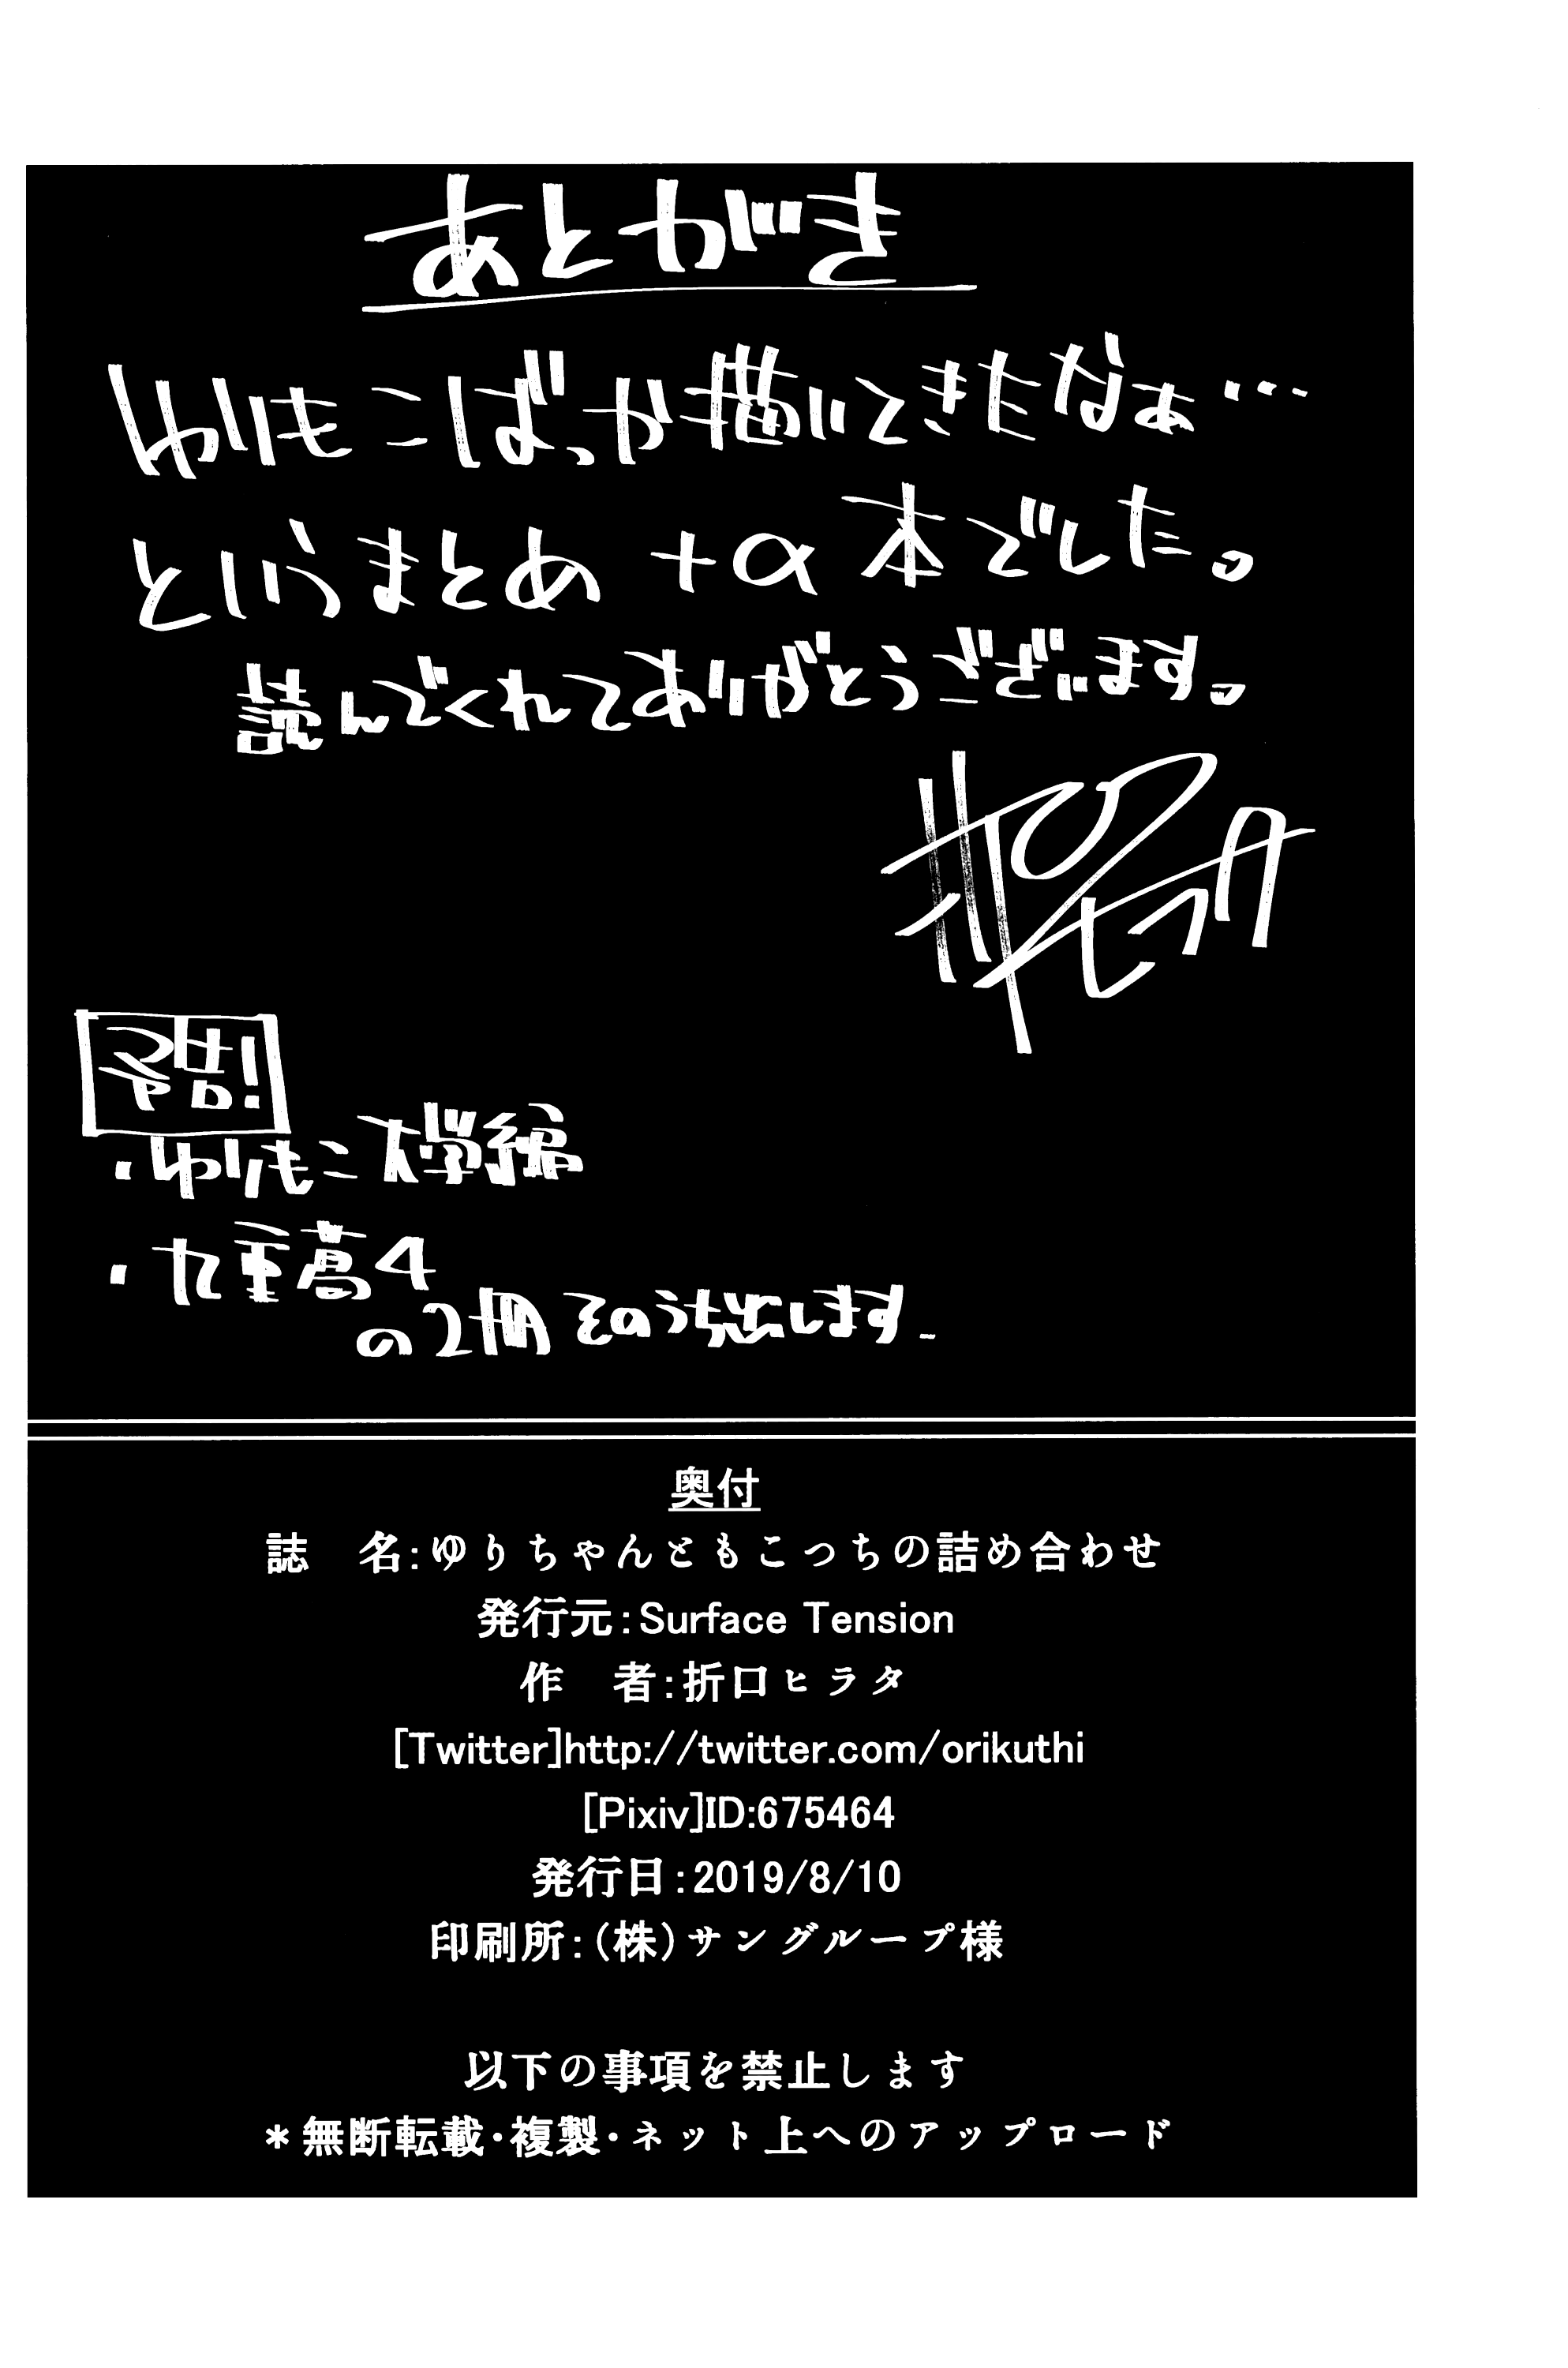 あとがき
ゆりもこばっか描いてきたなぁ…
というまとめ+α本でした。
読んでくれてありがとうございます。
・ゆりもこ 続編
・九重高4
の2冊そのうち出します。
奥付
誌　名:ゆりちゃんともこっちの詰め合わせ
発行元:Surface Tension
作　者:折口ヒラタ
[Twitter]http://twitter.com/orikuthi
[Pixiv]ID:675464
発行日:2019/8/10
印刷所:(株)サングループ様
以下の事項を禁止します
*無断転載・複製・ネット上へのアップロード